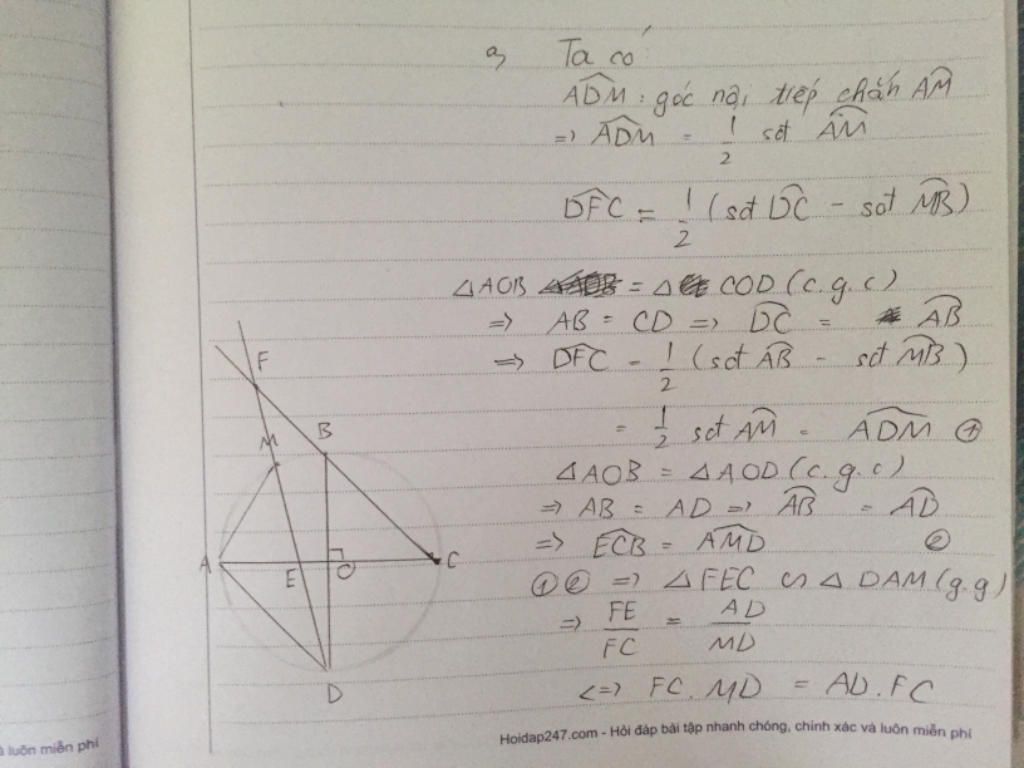 a, Ta có
ADM : góc nội tiếp chắn AM
=> ADM = 1/2 sđ AM
DFC = 1/2 (sđ DC - sđ MB)
△AOB = △ COD (c.g.c)
=> AB = CD => DC = AB
=> DFC = 1/2 (sđ AB - sđ MB)
= 1/2 sđ AM = ADM ①
△AOB = △AOD (c.g.c)
=> AB = AD => AB = AD
=> ECB = AMD ②
① ② => △ FEC ∽ △ DAM (g.g)
=> FE/FC = AD/MD
<=> FC . MD = AD . FC
F
M
B
A
E
O
C
D
Hoidap247.com - Hỏi đáp bài tập nhanh chóng, chính xác và luôn miễn phí
à luôn miễn phí